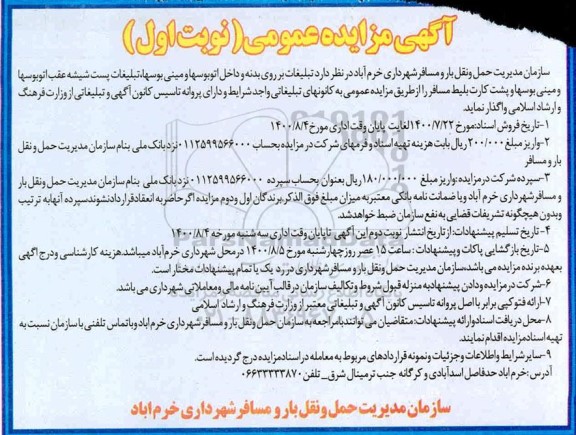 آگهی مزایده عمومی (نوبت اول)
سازمان مدیریت حمل و نقل بار و مسافر شهرداری خرم آباد در نظر دارد تبلیغات بر روی بدنه و داخل اتوبوسها و مینی بوسها، تبلیغات پست شیشه عقب اتوبوسها
و مینی بوسها و پشت کارت بلیط مسافر را از طریق مزایده عمومی به کانونهای تبلیغاتی واجد شرایط و دارای پروانه تاسیس کانون آگهی و تبلیغاتی از وزارت فرهنگ
و ارشاد اسلامی واگذار نماید.
۱-تاریخ فروش اسناد:مورخ ۱۴۰۰/۷/۲۲ لغایت پایان وقت اداری مورخ ۱۴۰۰/۸/۴
۲-واریز مبلغ ۲۰۰/۰۰۰ ریال بابت هزینه تهیه اسناد و فرمهای شرکت در مزایده بحساب ۰۱۱۲۵۹۹۵۶۶۰۰۰ نزد بانک ملی بنام سازمان مدیریت حمل و نقل
بار و مسافر
۳-سپرده شرکت در مزایده:واریز مبلغ ۱۸۰/۰۰۰/۰۰۰ ریال بعنوان بحساب سپرده ۰۱۱۲۵۹۹۵۶۶۰۰۰ نزد بانک ملی بنام سازمان مدیریت حمل و نقل بار
و مسافر شهرداری خرم آباد و یا ضمانت نامه بانکی معتبر به میزان مبلغ فوق الذکر،برندگان اول و دوم مزایده اگر حاضر به انعقاد قرارداد نشوند سپرده آنها به ترتیب
وبدون هیچگونه تشریفات قضایی به نفع سازمان ضبط خواهد شد.
۴- تاریخ تسلیم پیشنهادات: از تاریخ انتشار نوبت دوم این آگهی تا پایان وقت اداری سه شنبه مورخه ۱۴۰۰/۸/۴
۵-تاریخ بازگشایی پاکات و پیشنهادات: ساعت ۱۵ عصر روز چهارشنبه مورخ ۱۴۰۰/۸/۵ در محل شهرداری خرم آباد میباشد.هزینه کارشناسی و درج آگهی
بعهده برنده مزایده می باشد،سازمان مدیریت حمل و نقل بار و مسافر شهرداری در رد یک یا تمام پیشنهادات مختار است.
۶-شرکت در مزایده و دادن پیشنهاد به منزله قبول شروط و تکالیف سازمان در قالب آیین نامه مالی و معاملاتی شهرداری می باشد.
۷-ارائه فتوکپی برابر با اصل پروانه تاسیس کانون آگهی و تبلیغاتی معتبر از وزارت فرهنگ و ارشاد اسلامی
۸-محل دریافت اسناد و ارائه پیشنهادات: متقاضیان می توانند با مراجعه به سازمان حمل و نقل بار و مسافر شهرداری خرم آباد و با تماس تلفنی با سازمان نسبت به
تهیه اسناد مزایده اقدام نمایند.
۹-سایر شرایط و اطلاعات و جزئیات و نمونه قراردادهای مربوط به معامله در اسناد مزایده درج گردیده است.
آدرس:خرم آباد حدفاصل اسدآبادی و کرگانه جنب ترمینال شرق_ تلفن ۰۶۶۳۳۳۳۳۸۷۰
سازمان مدیریت حمل و نقل بار و مسافر شهرداری خرم آباد